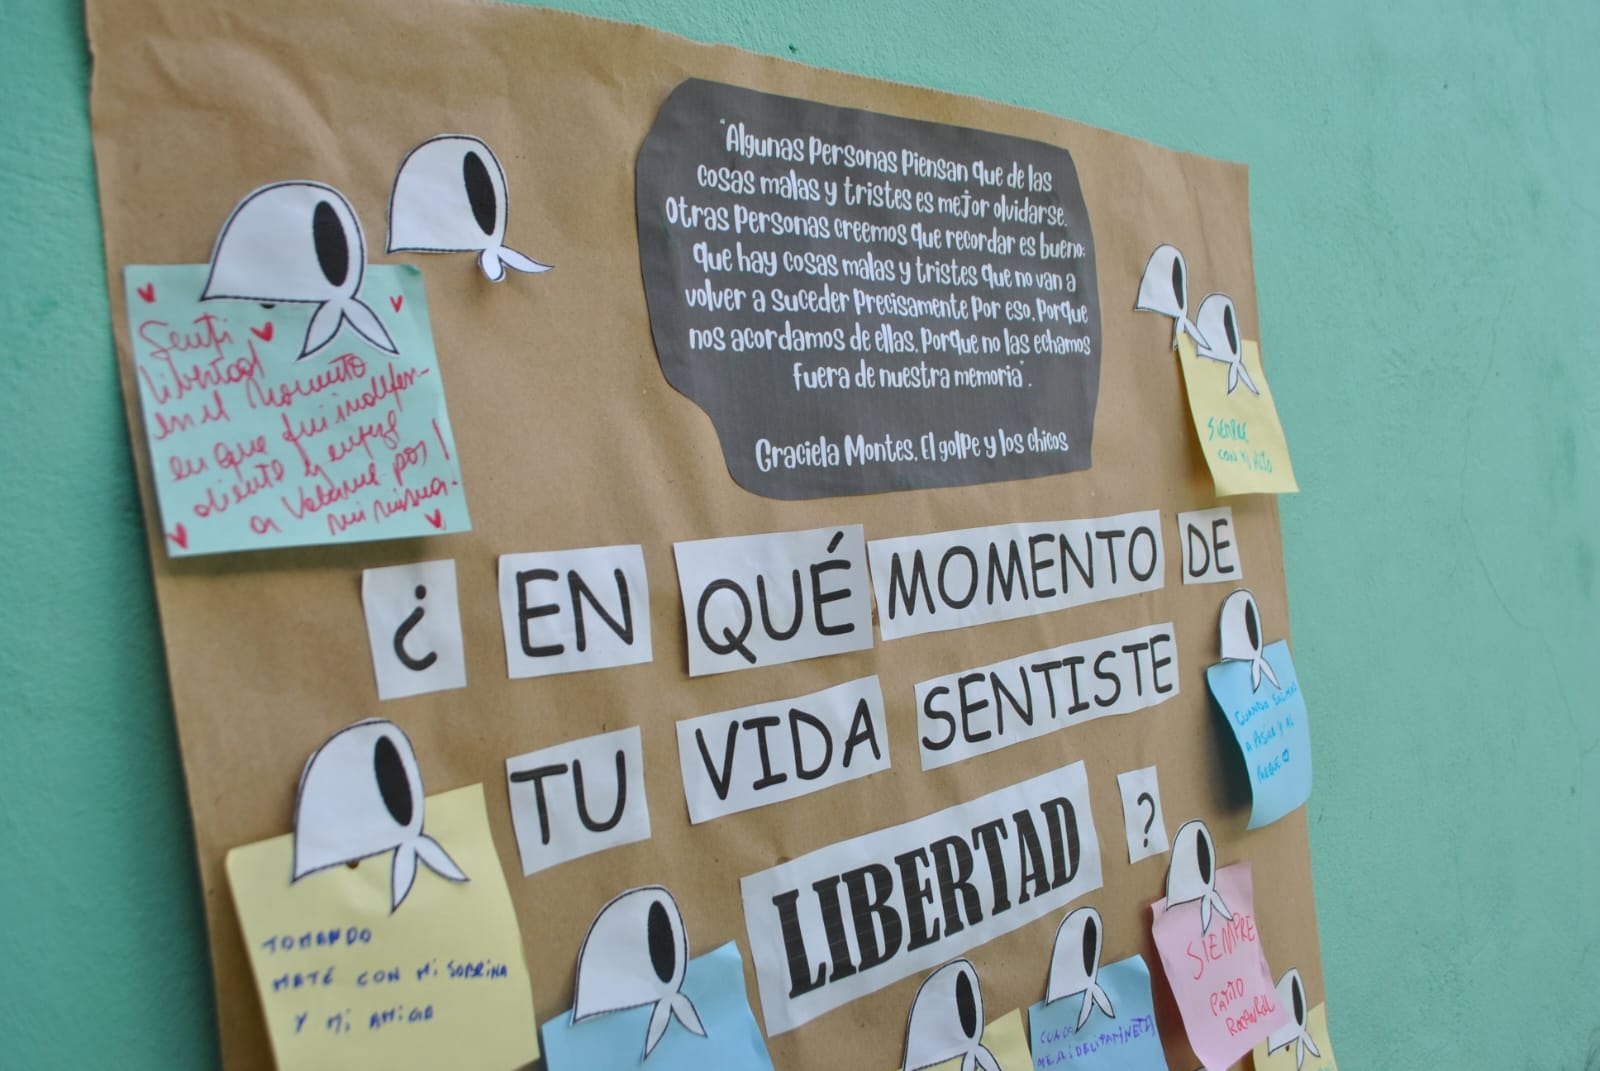 "Algunas personas piensan que de las
cosas malas y tristes es mejor olvidarse.
Otras personas creemos que recordar es bueno;
que hay cosas malas y tristes que no van a
volver a suceder precisamente por eso, porque
nos acordamos de ellas, porque no las echamos
fuera de nuestra memoria".
Graciela Montes. El golpe y los chicos
Sentí
libertad
en el momento
en que fui indepen-
diente y empecé
a valerme por
mi misma.
SIEMPRE
CON MI HIJO
¿EN QUÉ MOMENTO DE
TU VIDA SENTISTE
LIBERTAD?
CUANDO SALIMOS
A PASEAR Y AL
PARQUE
TOMANDO
MATE CON MI SOBRINA
Y MI AMIGA
SIEMPRE
PATITO